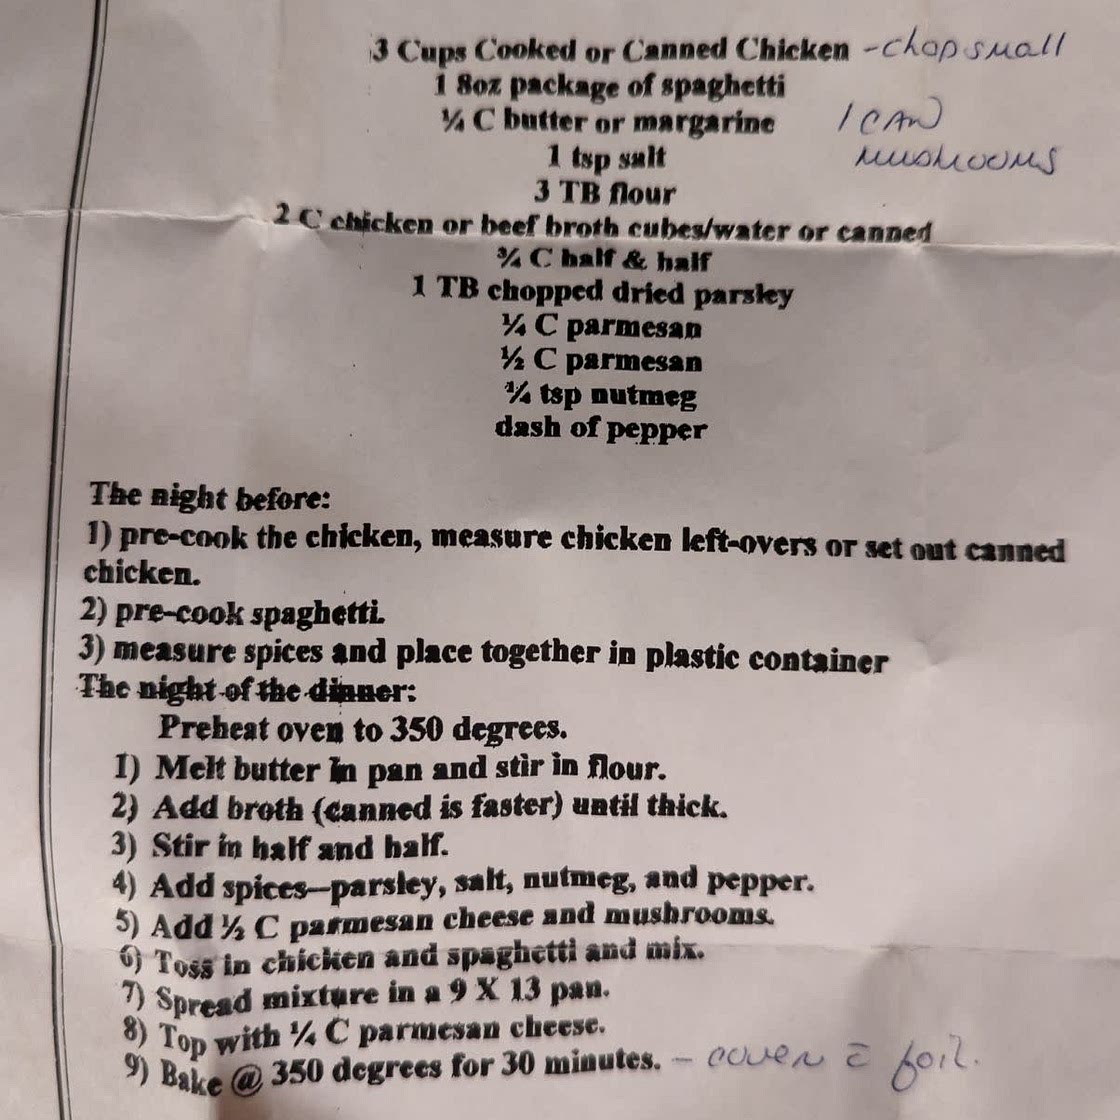 3 Cups Cooked or Canned Chicken -chop small
1 8oz package of spaghetti
¼ C butter or margarine
1 CAN
mushrooms
1 tsp salt
3 TB flour
2 C chicken or beef broth cubes/water or canned
¾ C half & half
1 TB chopped dried parsley
¼ C parmesan
½ C parmesan
¼ tsp nutmeg
dash of pepper
The night before:
1) pre-cook the chicken, measure chicken left-overs or set out canned
chicken.
2) pre-cook spaghetti.
3) measure spices and place together in plastic container
The night of the dinner:
Preheat oven to 350 degrees.
1) Melt butter in pan and stir in flour.
2) Add broth (canned is faster) until thick.
3) Stir in half and half.
4) Add spices—parsley, salt, nutmeg, and pepper.
5) Add ½ C parmesan cheese and mushrooms.
6) Toss in chicken and spaghetti and mix.
7) Spread mixture in a 9 X 13 pan.
8) Top with ¼ C parmesan cheese.
9) Bake @ 350 degrees for 30 minutes. - cover c̄ foil.